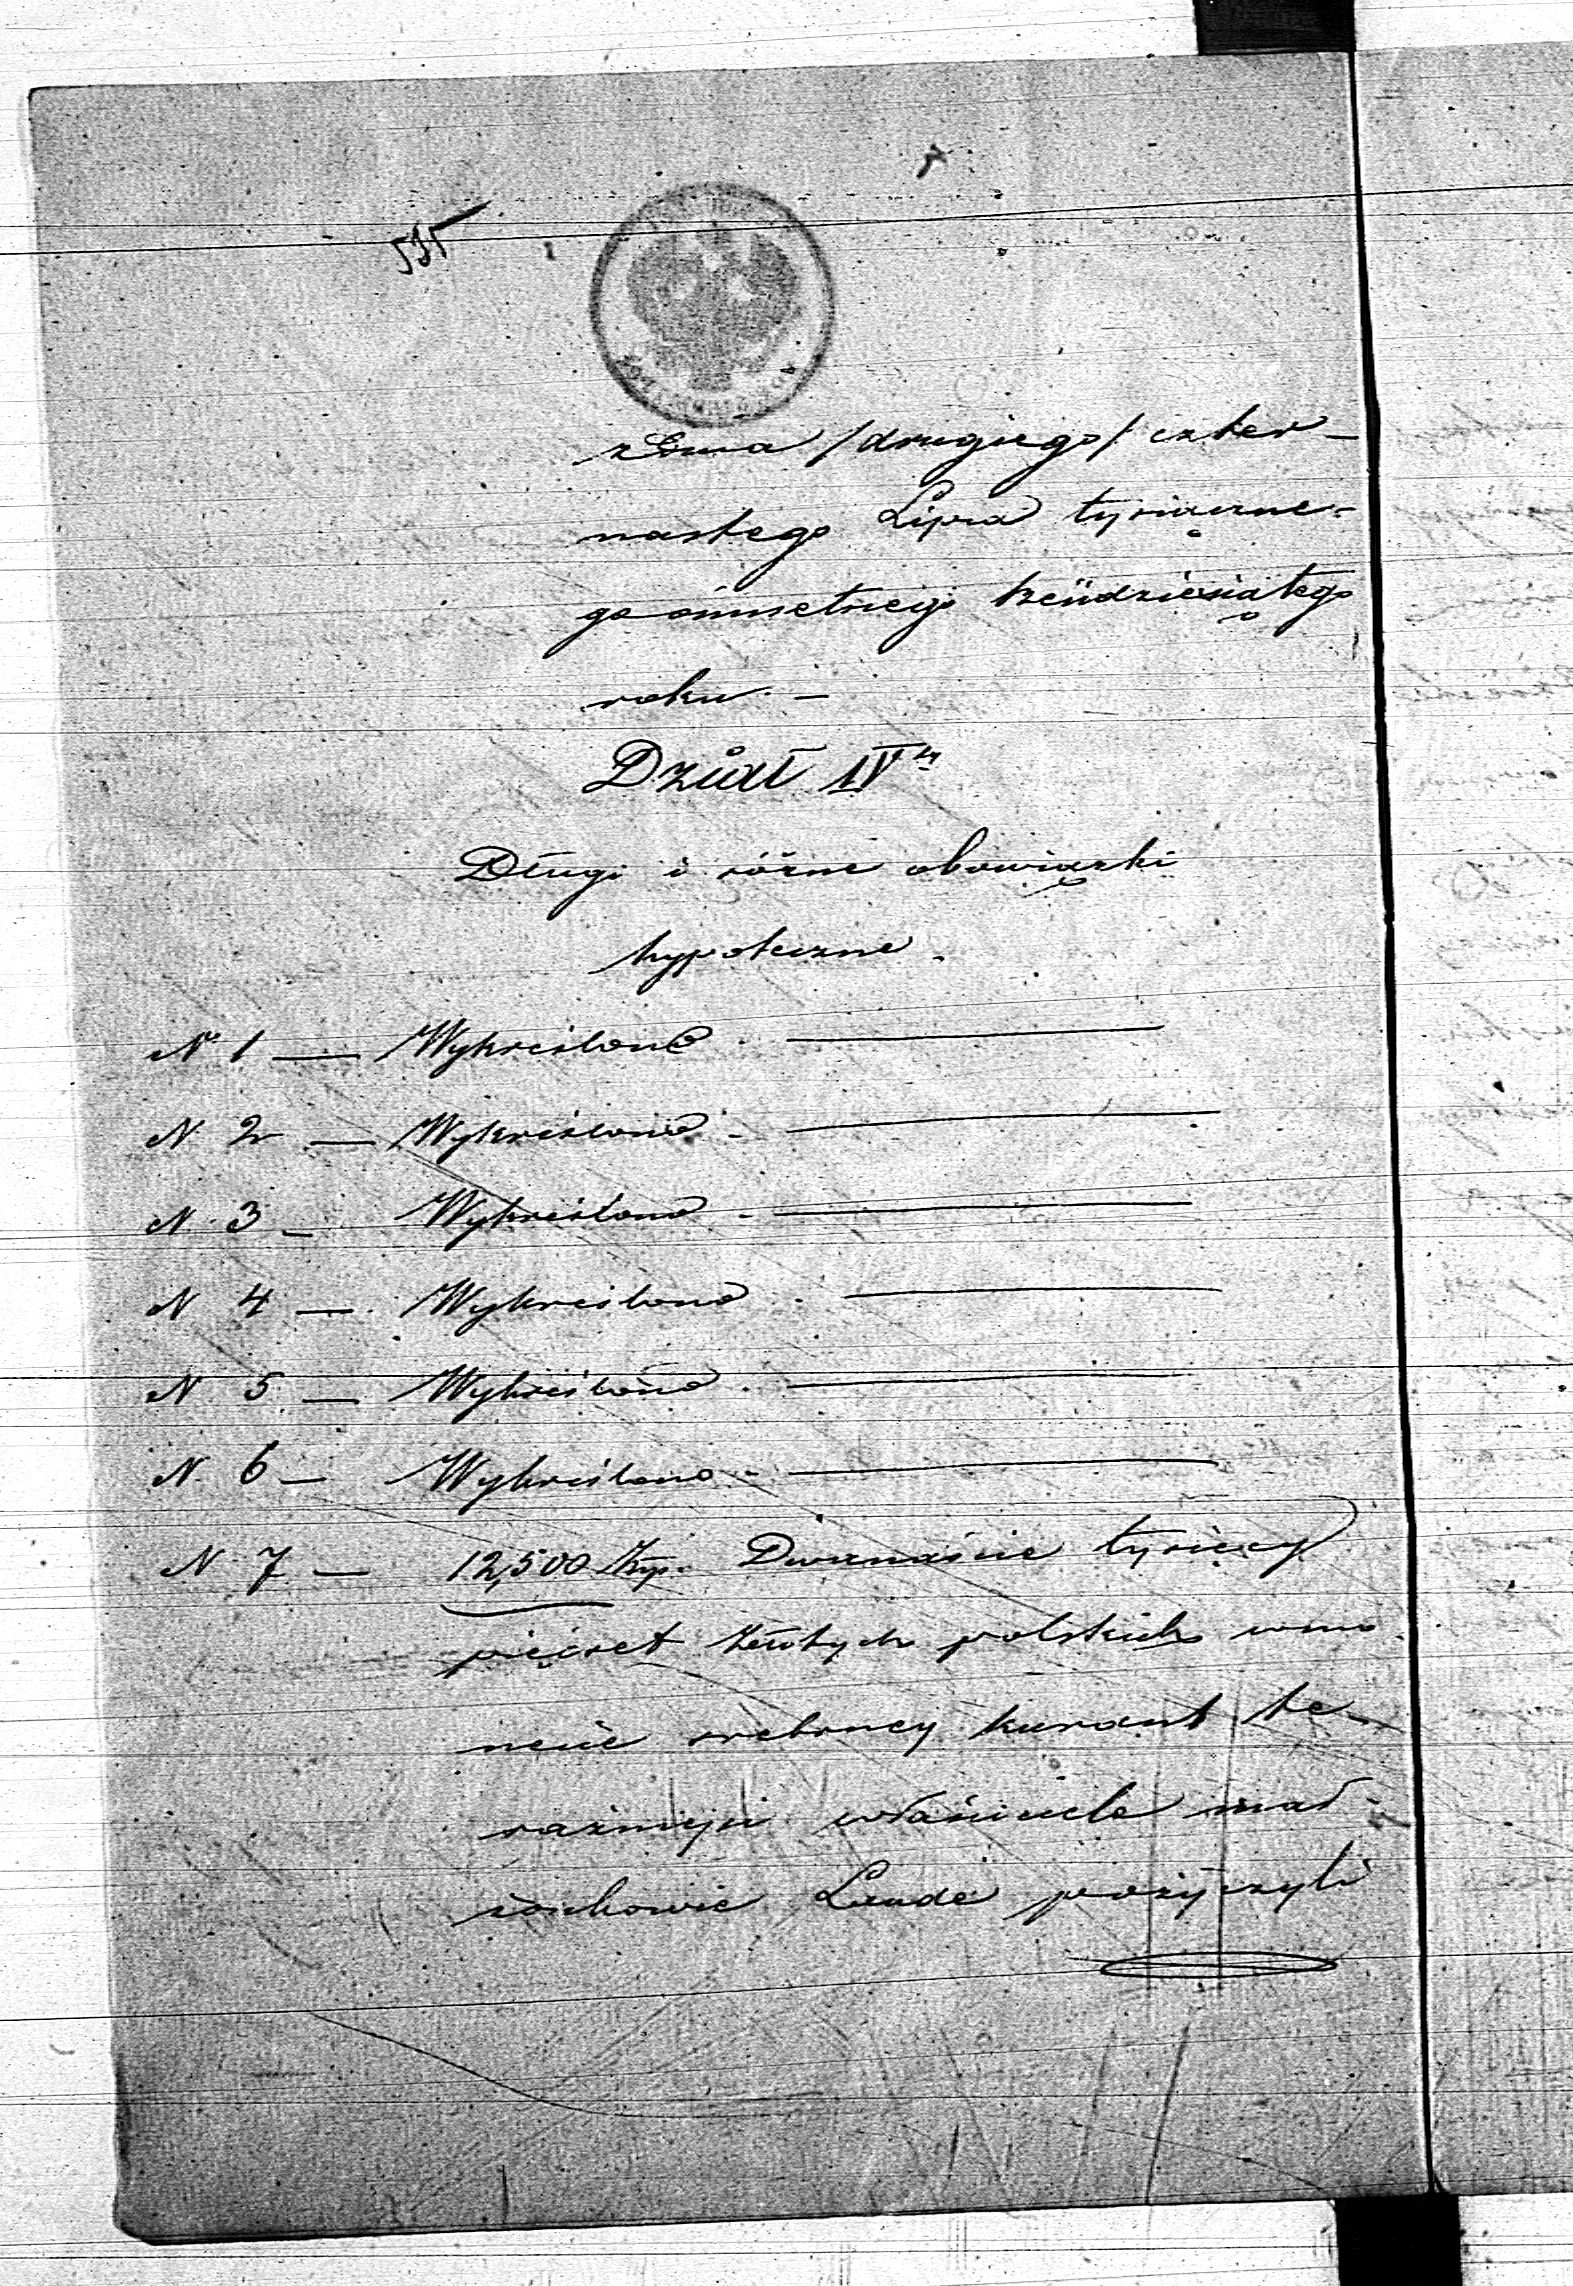 535
z dnia /drugiego/ czter-
nastego Lipca tysiączne-
go ośmsetnego trzydziesiątego
roku. —
Dział IVty
Długi i różne obowiązki
hypoteczne.
No 1 — Wykreślono. —
N. 2 — Wykreślono. —
N. 3 — Wykreślono. —
N. 4 — Wykreślono. —
N. 5 — Wykreślono. —
N. 6 — Wykreślono. —
N. 7 — 12,500 Złp. Dwanaście tysięcy
pięćset złotych polskich w mo
necie srebrney kurant te-
raźniejsi właściciele mał-
żonkowie Laude pożyczyli